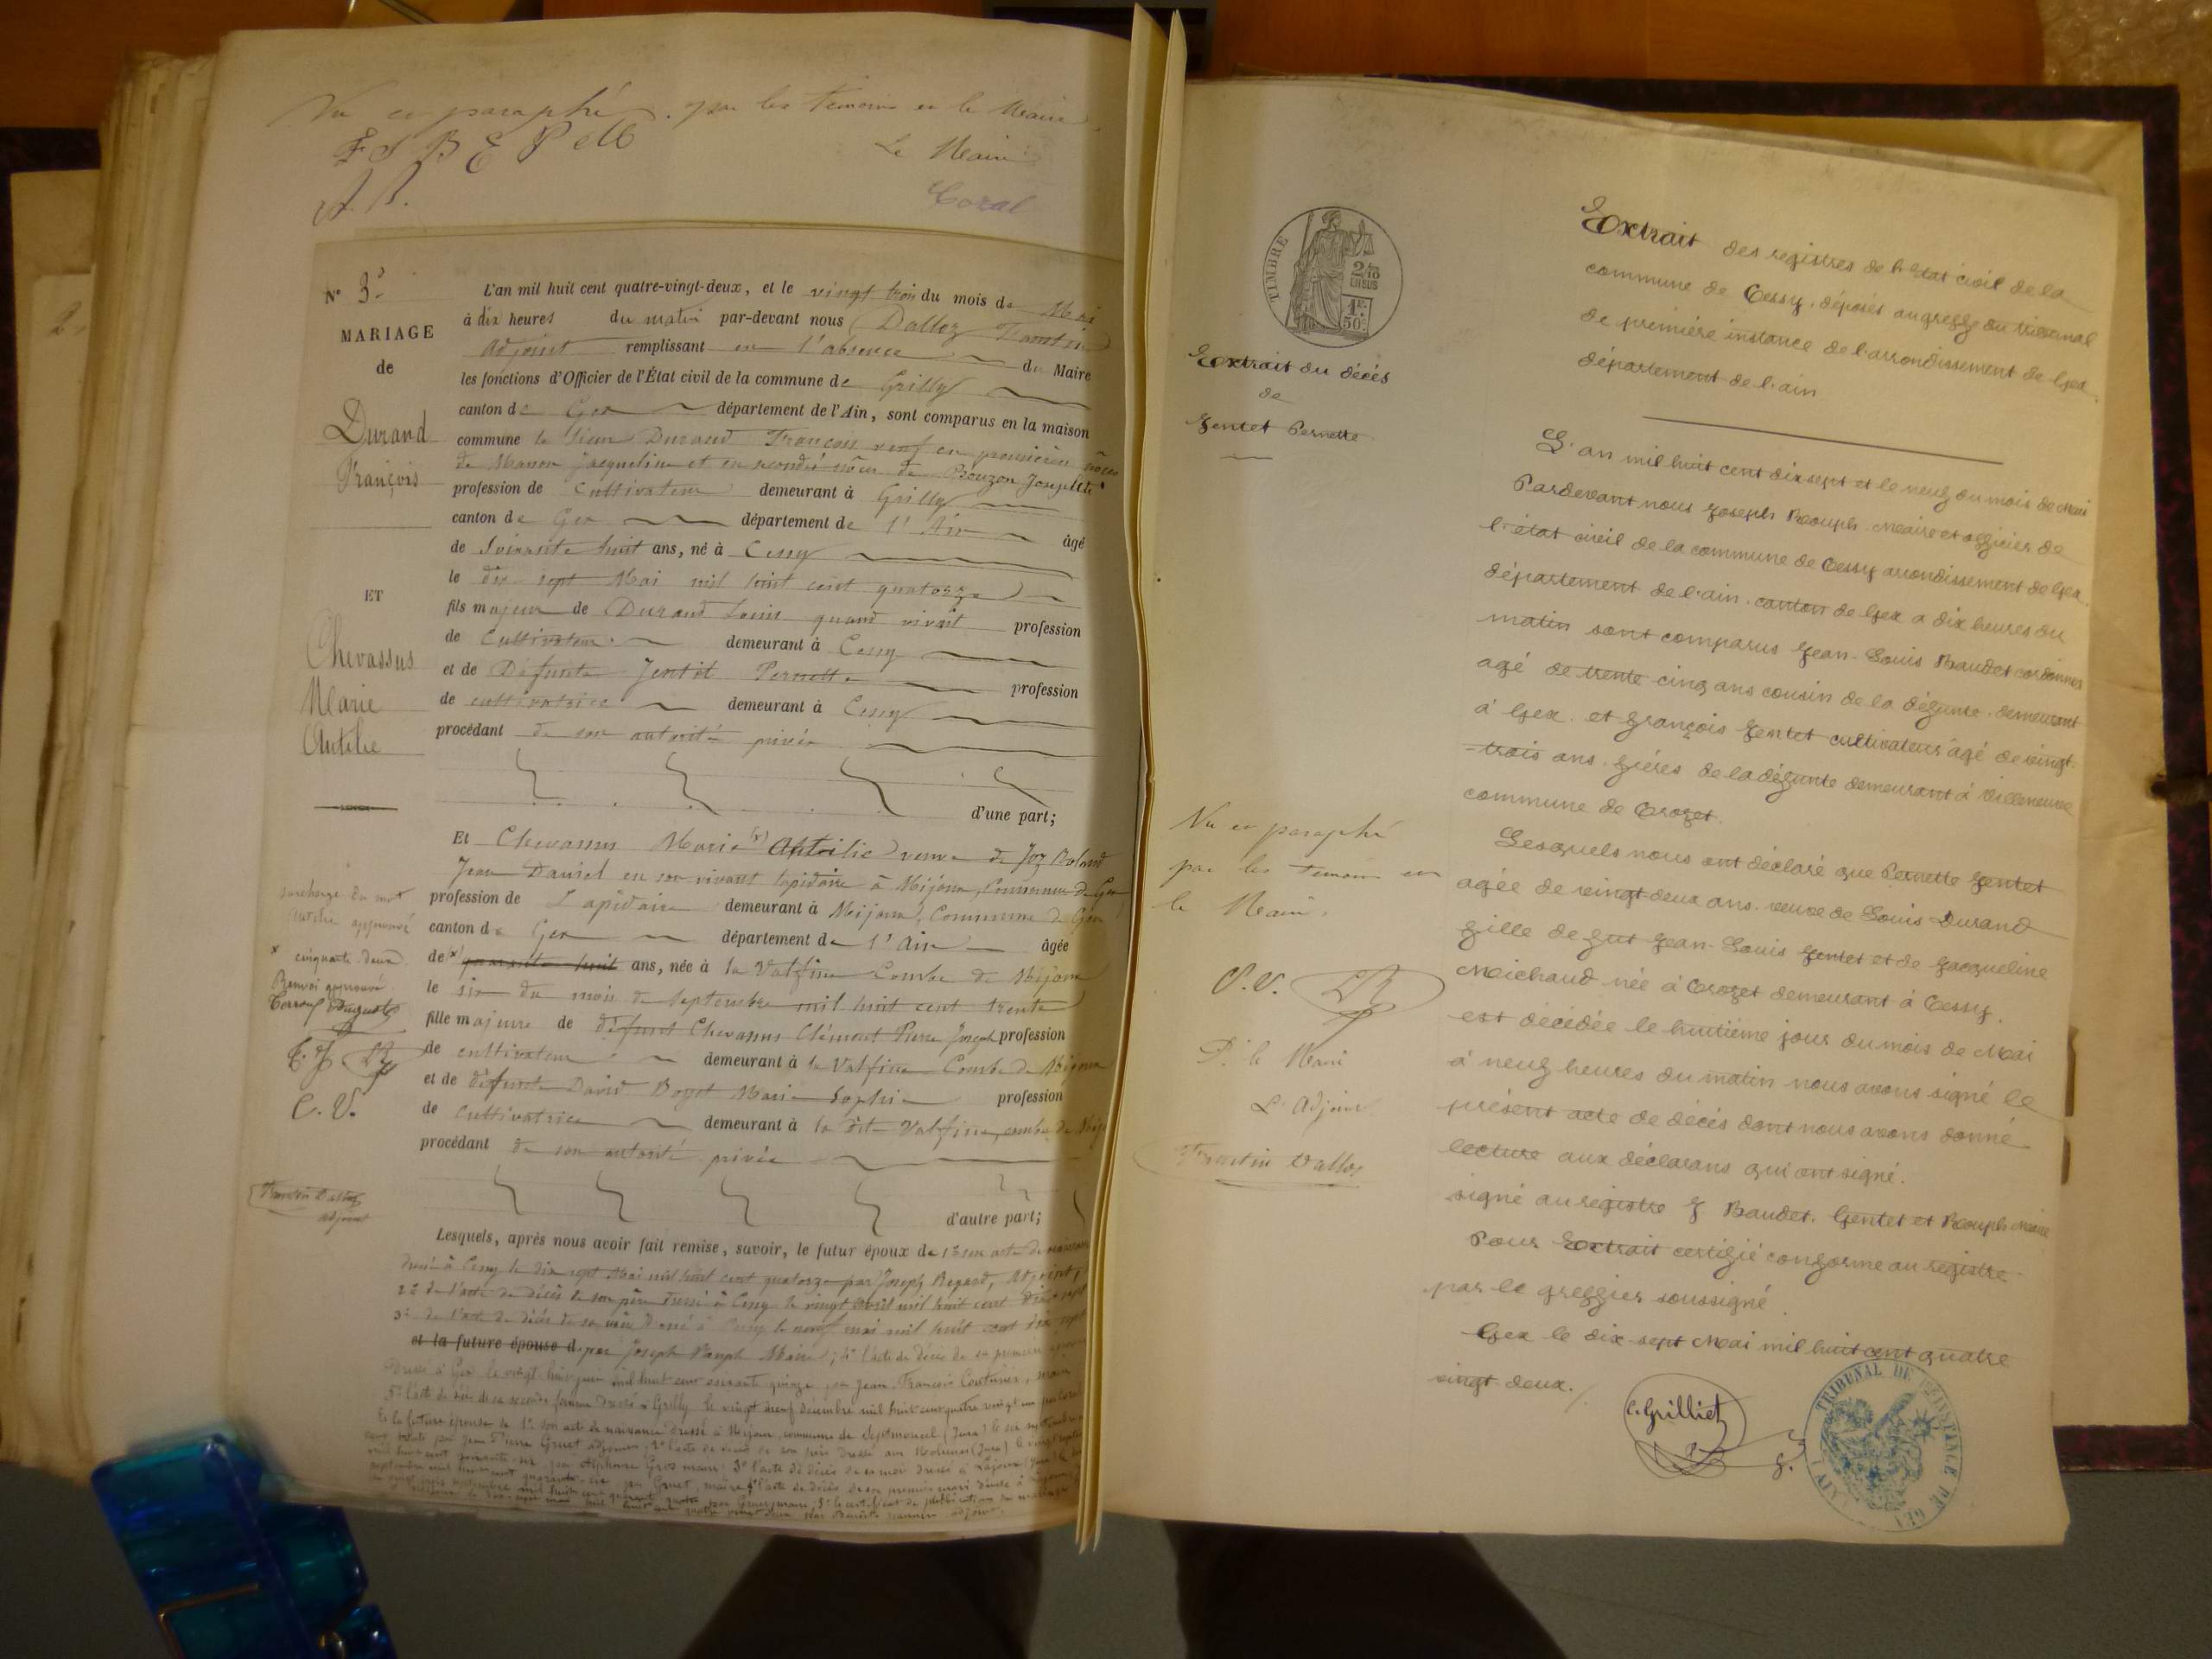 Vu et paraphé par les témoins et le Maire.
F J B E P
Le Maire
A. B.
Nº 3.
MARIAGE
de
Durand
François
ET
Chevassus
Marie
L'an mil huit cent quatre-vingt-deux, et le vingt trois du mois de Mai
à dix heures du matin par-devant nous Dalloz Frantin
Adjoint remplissant en l'absence du Maire
les fonctions d'Officier de l'État civil de la commune de Grilly
canton de Gex département de l'Ain, sont comparus en la maison
commune le Sieur Durand François veuf en première nôces
de Masson Jacqueline et en seconde nôces de Bouzon Josephte
profession de Cultivateur demeurant à Grilly
canton de Gex département de l'Ain âgé
de Soixante huit ans, né à Cessy
le dix sept Mai mil huit cent quatorze
fils majeur de Durand Louis quand vivait profession
de Cultivateur demeurant à Cessy
et de Défunte Jentet Pernette profession
de cultivatrice demeurant à Cessy
procédant de son autorité privée
d'une part;
Et Chevassus Marie veuve de Joz Roland
Jean Daniel en son vivant lapidaire à Mijoux, Commune de Gex
profession de Lapidaire demeurant à Mijoux, Commune de Gex
canton de Gex département de l'Ain âgée
de (x) quarante huit ans, née à la Valfine Combe de Mijoux
le six du mois de Septembre mil huit cent trente
fille majeure de défunt Chevassus Clément Pierre Joseph profession
de cultivateur demeurant à la Valfine Combe de Mijoux
et de défunte David Boget Marie Sophie profession
de Cultivatrice demeurant à la dite Valfine, combe de
procédant de son autorité privée
d'autre part;
surcharge du mot
approuvé
x cinquante deux
Renvoi approuvé
C. V.
Frantin Dalloz
adjoint
Lesquels, après nous avoir fait remise, savoir, le futur époux de 1º son acte de naissance
dressé à Cessy le dix sept Mai mil huit cent quatorze par Joseph Regard, Adjoint;
2º de l'acte de décès de son père dressé à Cessy le vingt avril mil huit cent dix sept
3º de l'acte de décès de sa mère dressé à Cessy le neuf mai mil huit cent dix sept
et la future épouse de par Joseph Rouph Maire; 4º l'acte de décès de sa première
dressé à Gex le vingt huit juin mil huit cent soixante quinze, par Jean François Couturier, maire
5º l'acte de décès de sa seconde femme dressé à Grilly le vingt neuf décembre mil huit cent quatre vingt un
Et la future épouse de 1º son acte de naissance dressé à Mijoux, commune de Septmoncel (Jura) le six septembre
TIMBRE
2/10
EN SUS
1F
50C
Extrait du décès
de
Gentet Pernette
Extrait des registres de l'état civil de la
commune de Cessy, déposés au greffe du tribunal
de première instance de l'arrondissement de Gex
département de l'ain
L'an mil huit cent dix sept et le neuf du mois de Mai
Pardevant nous Joseph Rouph Maire et officier de
l'état civil de la commune de Cessy arrondissement de Gex
département de l'ain canton de Gex a dix heures du
matin sont comparus Jean-Louis Baudet cordonnier
agé de trente cinq ans cousin de la défunte demeurant
à Gex. et françois Gentet cultivateur agé de vingt
-trois ans. frères de la défunte demeurant à Villeneuve
commune de Crozet.
Lesquels nous ont déclaré que Pernette Gentet
agée de vingt-deux ans veuve de Louis Durand
fille de fut Jean-Louis Gentet et de Jacqueline
Meichaud née à Crozet demeurant à Cessy.
est décédée le huitième jour du mois de Mai
à neuf heures du matin nous avons signé le
présent acte de décès dont nous avons donné
lecture aux déclarans qui ont signé.
signé au registre J Baudet. Gentet et Rouph Maire
Pour Extrait certifié conforme au registre
par le greffier soussigné.
Gex le dix-sept Mai mil huit cent quatre
vingt-deux.
Vu et paraphé
par les témoins et
le Maire.
C. V.
P. le Maire
L'Adjoint
Frantin Dalloz
C. Grilliet
TRIBUNAL DE 1ère INSTANCE DE GEX (AIN)